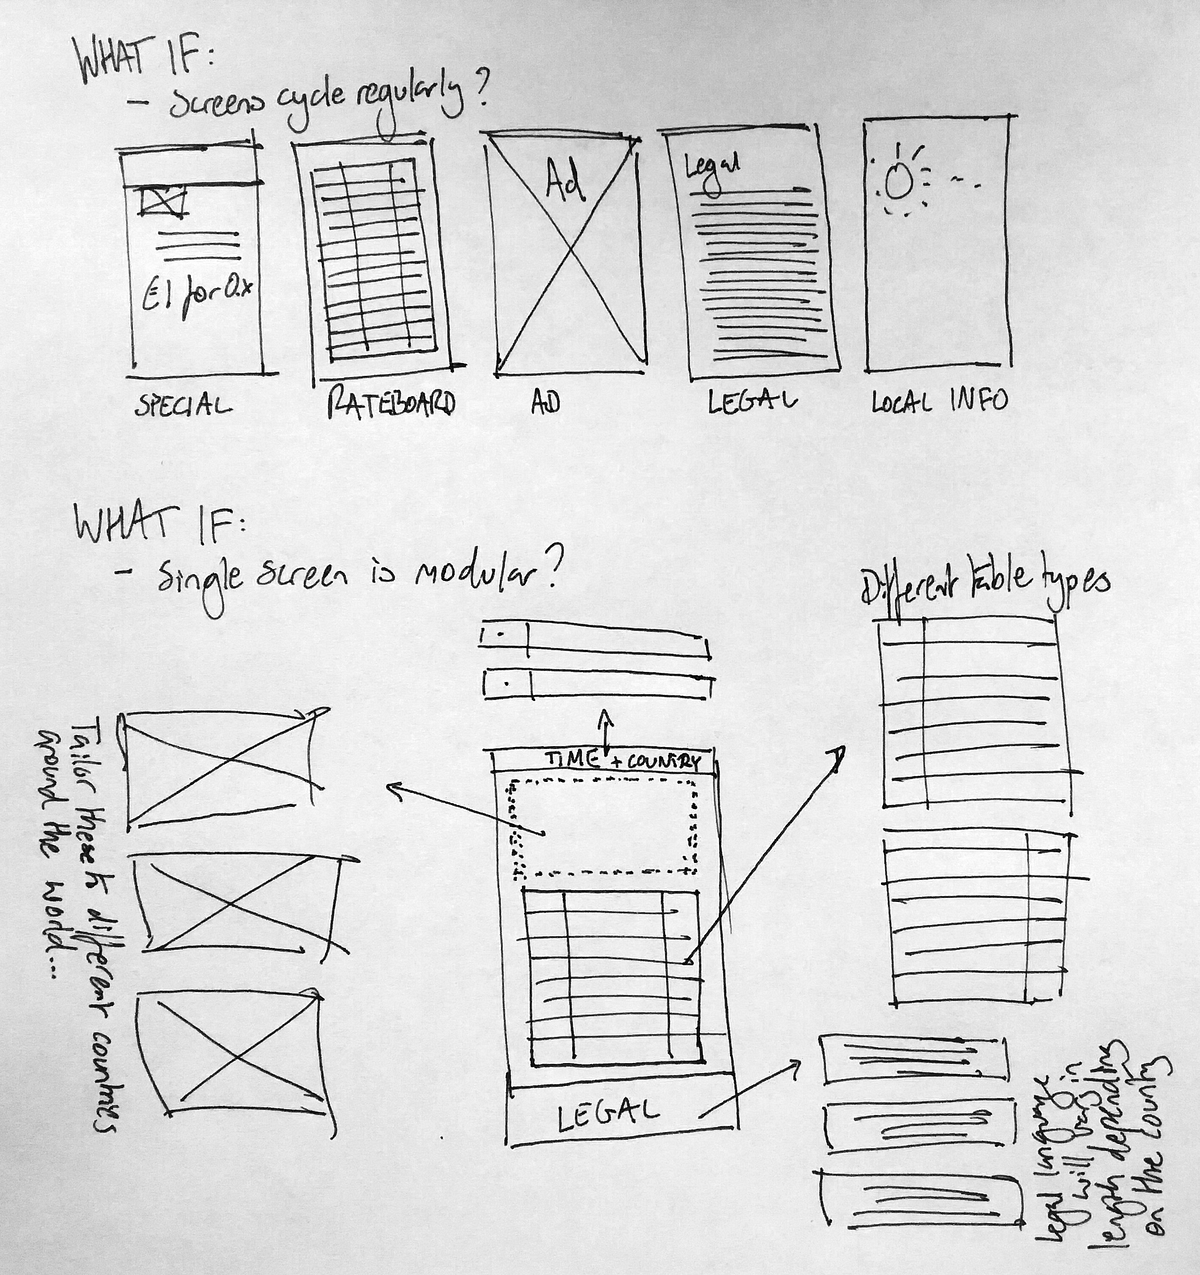 WHAT IF:
- Screens cycle regularly?
Ad
Legal
£1 for 0.x
SPECIAL
RATEBOARD
AD
LEGAL
LOCAL INFO
WHAT IF:
- Single screen is modular?
Different table types
TIME + COUNTRY
Tailor these to different countries
around the world...
LEGAL
Legal language
will vary in
length depending
on the county